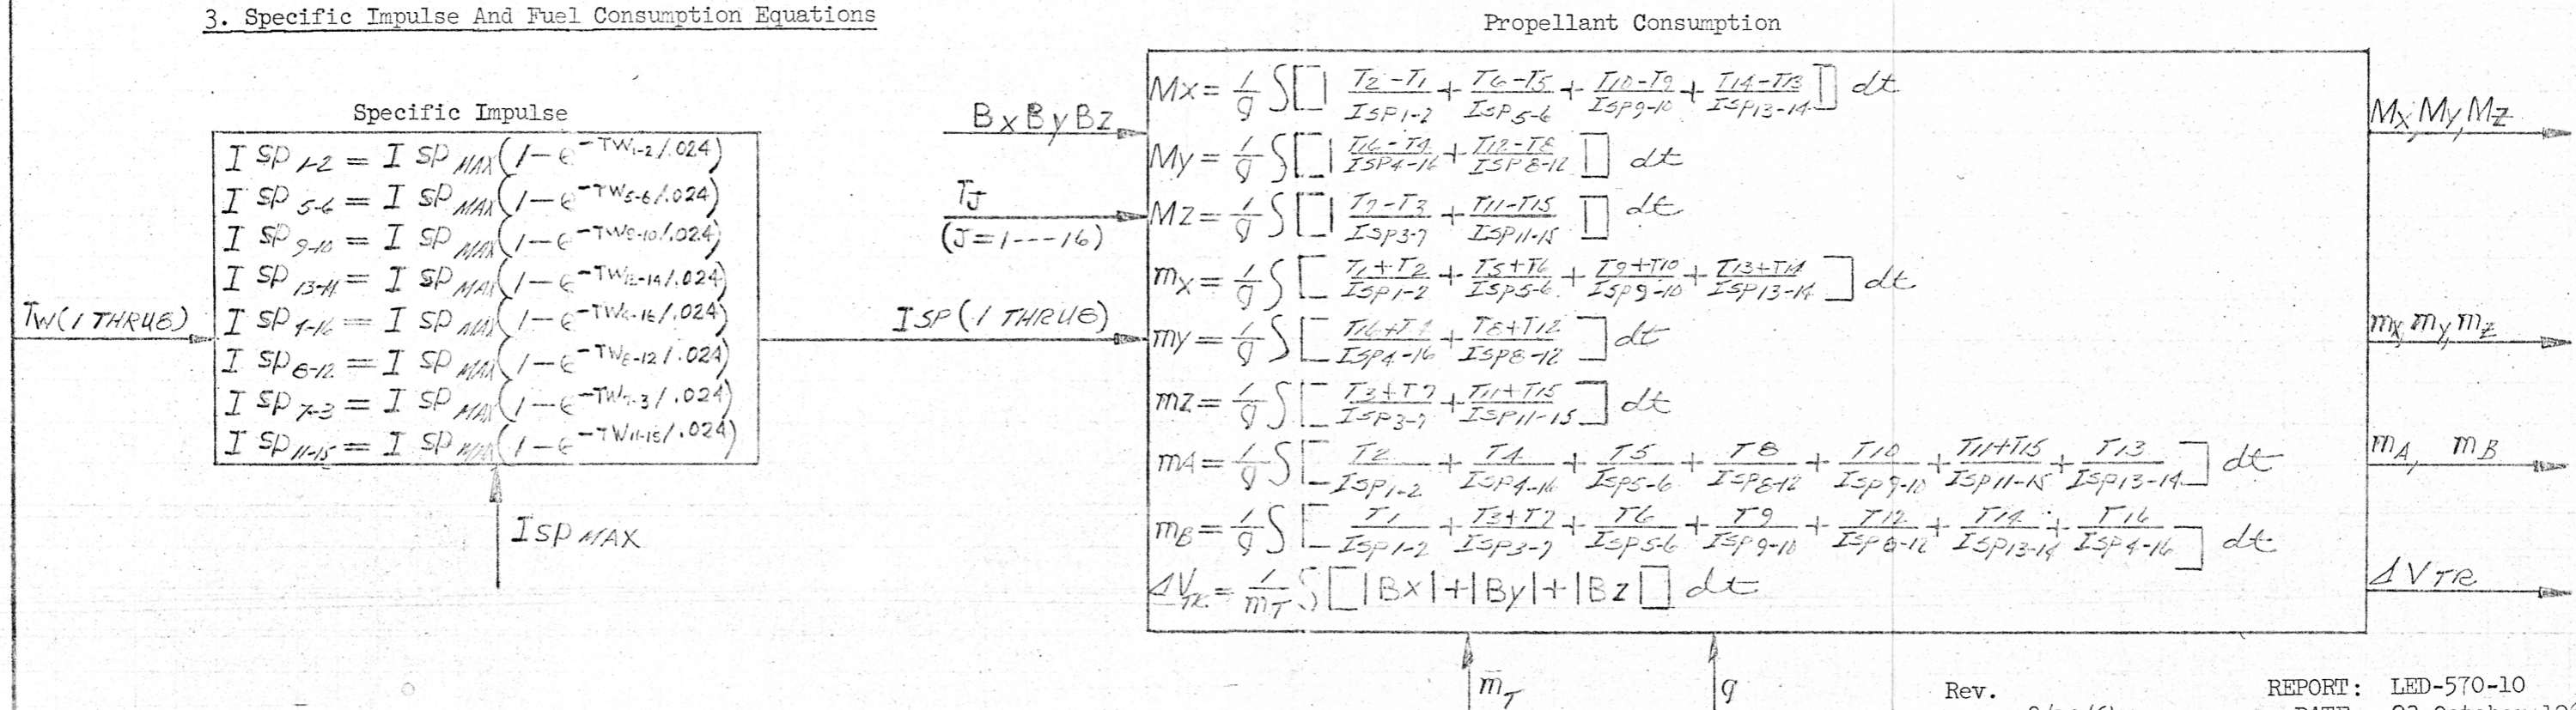 3. Specific Impulse And Fuel Consumption Equations
Propellant Consumption
Specific Impulse
TW (1 THRU 8)
I SP 1-2 = I SP MAX (1-ε^-TW1-2/.024)
I SP 5-6 = I SP MAX (1-ε^-TW5-6/.024)
I SP 9-10 = I SP MAX (1-ε^-TW9-10/.024)
I SP 13-14 = I SP MAX (1-ε^-TW13-14/.024)
I SP 4-16 = I SP MAX (1-ε^-TW4-16/.024)
I SP 8-12 = I SP MAX (1-ε^-TW8-12/.024)
I SP 7-3 = I SP MAX (1-ε^-TW7-3/.024)
I SP 11-15 = I SP MAX (1-ε^-TW11-15/.024)
ISP MAX
Bx By Bz
TJ
(J=1---16)
ISP (1 THRU 8)
Mx = 1/g ∫[] T2-T1/ISP1-2 + T6-T5/ISP5-6 + T10-T9/ISP9-10 + T14-T13/ISP13-14] dt
My = 1/g ∫[] T16-T4/ISP4-16 + T12-T8/ISP8-12 [] dt
Mz = 1/g ∫[] T7-T3/ISP3-7 + T11-T15/ISP11-15 [] dt
mx = 1/g ∫[T1+T2/ISP1-2 + T5+T6/ISP5-6 + T9+T10/ISP9-10 + T13+T14/ISP13-14] dt
my = 1/g ∫[T16+T4/ISP4-16 + T8+T12/ISP8-12] dt
mz = 1/g ∫[T3+T7/ISP3-7 + T11+T15/ISP11-15] dt
mA = 1/g ∫[T2/ISP1-2 + T4/ISP4-16 + T5/ISP5-6 + T8/ISP8-12 + T10/ISP9-10 + T11+T15/ISP11-15 + T13/ISP13-14] dt
mB = 1/g ∫[T1/ISP1-2 + T3+T7/ISP3-7 + T6/ISP5-6 + T9/ISP9-10 + T12/ISP8-12 + T14/ISP13-14 + T16/ISP4-16] dt
ΔVTR = 1/mT ∫[|Bx|+|By|+|Bz|] dt
Mx, My, Mz
mx, my, mz
mA, mB
ΔVTR
mT
g
Rev.
REPORT: LED-570-10